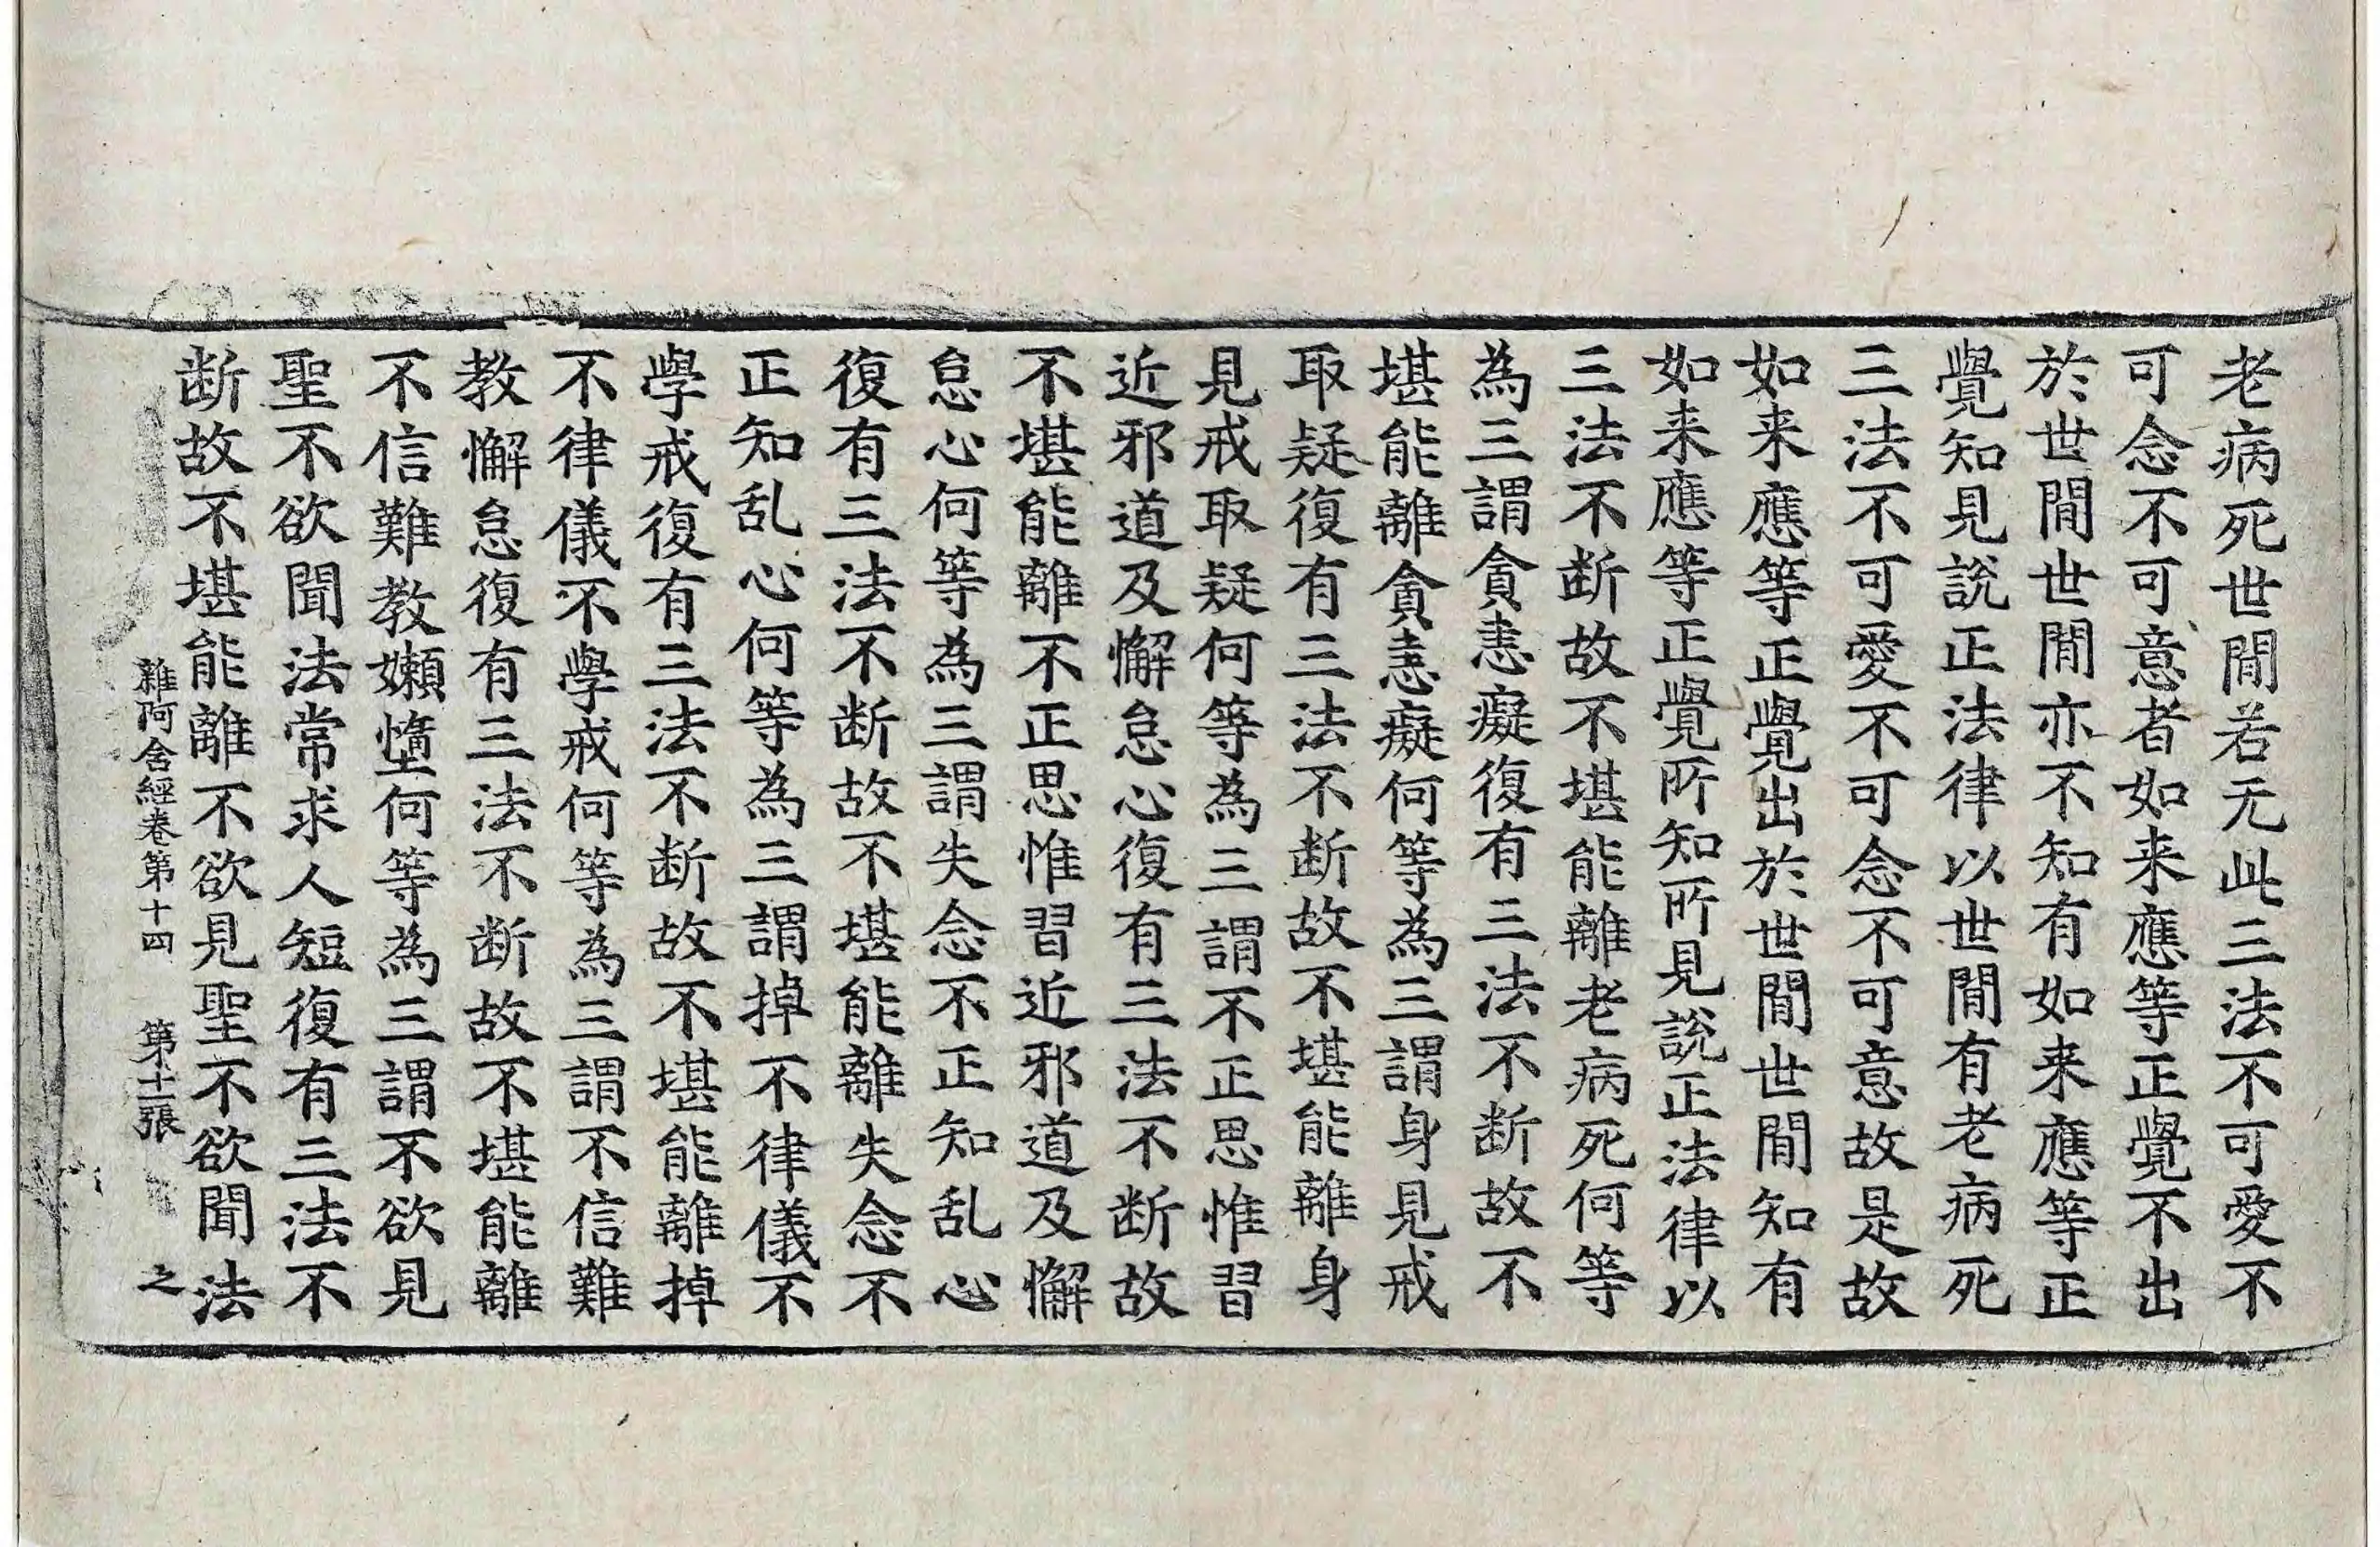 老病死世閒若无此三法不可愛不
可念不可意者如来應等正覺不出
於世閒世閒亦不知有如来應等正
覺知見說正法律以世閒有老病死
三法不可愛不可念不可意故是故
如来應等正覺出於世閒世閒知有
如来應等正覺所知所見說正法律以
三法不断故不堪能離老病死何等
為三謂貪恚癡復有三法不断故不
堪能離貪恚癡何等為三謂身見戒
取疑復有三法不断故不堪能離身
見戒取疑何等為三謂不正思惟習
近邪道及懈怠心復有三法不断故
不堪能離不正思惟習近邪道及懈
怠心何等為三謂失念不正知乱心
復有三法不断故不堪能離失念不
正知乱心何等為三謂掉不律儀不
學戒復有三法不断故不堪能離掉
不律儀不學戒何等為三謂不信難
教懈怠復有三法不断故不堪能離
不信難教嬾墯何等為三謂不欲見
聖不欲聞法常求人短復有三法不
断故不堪能離不欲見聖不欲聞法
雜阿含經卷第十四 第十二張 之